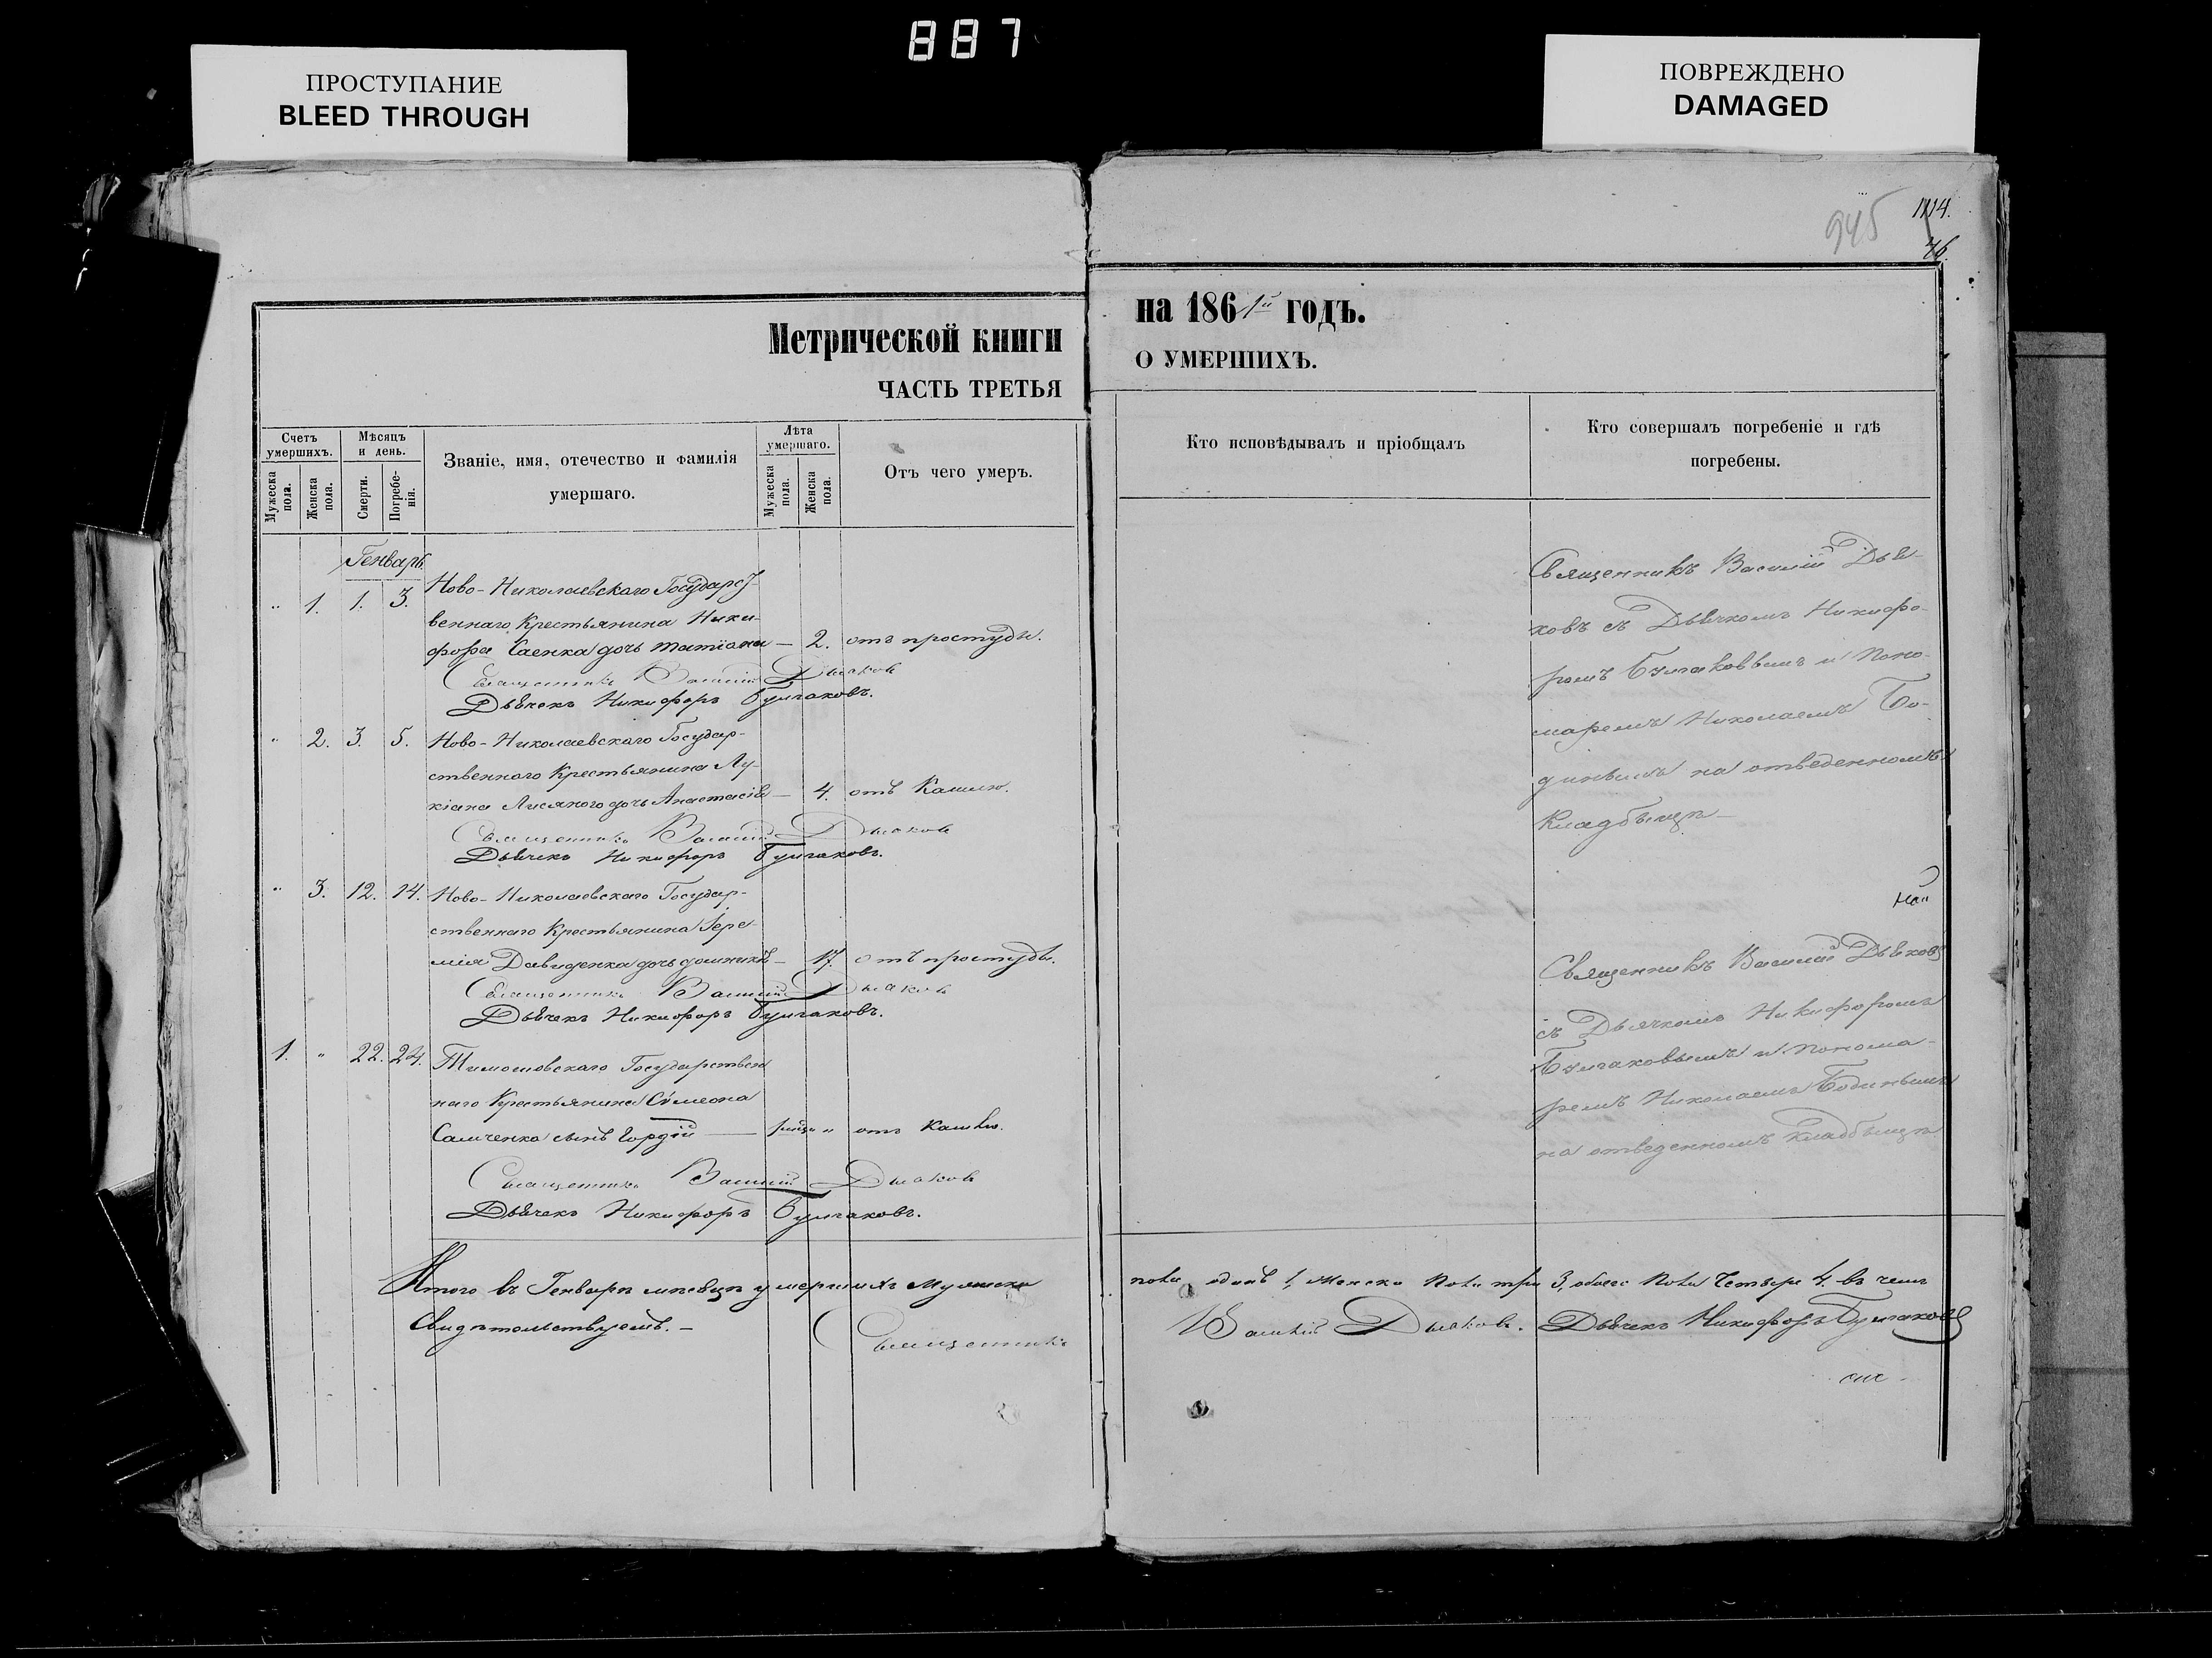 887
ПРОСТУПАНИЕ
BLEED THROUGH
ПОВРЕЖДЕНО
DAMAGED
945
1114.
76.
Метрической книги
ЧАСТЬ ТРЕТЬЯ
на 1861й годъ.
О УМЕРШИХЪ.
Счетъ умершихъ.
Мужеска пола.
Женска пола.
Мѣсяцъ и день.
Смерти.
Погребенія.
Званіе, имя, отечество и фамилія
умершаго.
Лѣта умершаго.
Мужеска пола.
Женска пола.
Отъ чего умеръ.
Кто исповѣдывалъ и пріобщалъ
Кто совершалъ погребеніе и гдѣ
погребены.
Генварь.
" 1. 1. 3. Ново-Николаевскаго Государст-
веннаго Крестьянина Ники-
фора Саенка дочь татіана — 2. отъ простуды.
Священникъ Василій Дьяковъ
Дьячекъ Никифоръ Булгаковъ.
" 2. 3. 5. Ново-Николаевскаго Государ-
ственнаго Крестьянина Лу-
кіана Лисянаго дочь Анастасія — 4. отъ Кашлю.
Священникъ Василій Дьяковъ
Дьячекъ Никифоръ Булгаковъ.
" 3. 12. 14. Ново-Николаевскаго Государ-
ственнаго Крестьянина Іере-
мія Давиденка дочь домникія — 17. отъ простуды.
Священникъ Василій Дьяковъ
Дьячекъ Никифоръ Булгаковъ.
1. " 22. 24. Тимошовскаго Государствен
наго Крестьянина Сѵмеона
Самченка сынъ Гордій — 1 мѣц. " отъ Кашлю.
Священникъ Василій Дьяковъ
Дьячекъ Никифоръ Булгаковъ.
Священникъ Василій Дья-
ковъ съ Дьячкомъ Никифо-
ромъ Булгаковымъ и Поно-
маремъ Николаемъ Бо-
динвымъ на отведенномъ
Кладбищѣ —
Священникъ Василій Дьяковъ
съ Дьячкомъ Никифоромъ
Булгаковымъ и понома-
ремъ Николаемъ Бодинвымъ
на отведенномъ кладбищѣ
Итого въ Генварѣ мѣсяцѣ умершихъ Мужеска пола одинъ 1, Женска пола три 3, обоего пола Четыре 4. въ чемъ
Свидѣтельствуемъ. — Священникъ Василій Дьяковъ. Дьячекъ Никифоръ Булгаковъ